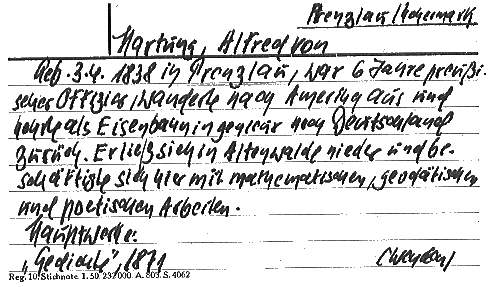 Prenzlau/Uckermark
Hartung, Alfred von
Geb. 3.4. 1838 in Prenzlau, war 6 Jahre preußi-
scher Offizier, wanderte nach Amerika aus und
kehrte als Eisenbahningenieur nach Deutschland
zurück. Er ließ sich in Altenwalde nieder und be-
schäftigte sich hier mit mathematischen, geodätischen
und poetischen Arbeiten.
Hauptwerke:
„Gedichte", 1871
Reg. 10. Stichnote 1. 50. 237000. A. 803. S. 4062